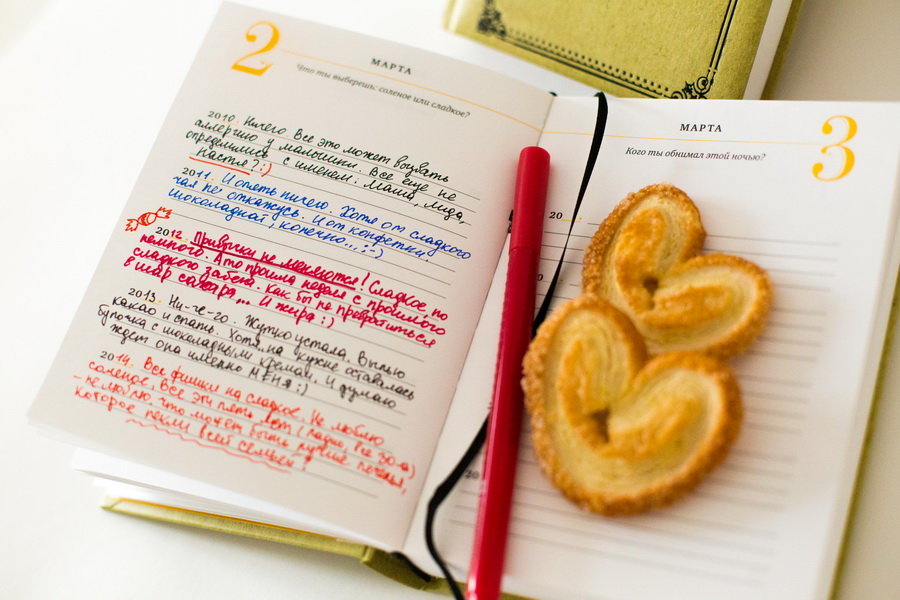 2
МАРТА
Что ты выберешь: соленое или сладкое?
2010. Ничего. Все это может вызвать
аллергию у малышки. Все еще не
определились с именем: Маша, Лида,
Настя?:)
2011. И опять ничего. Хотя от сладкого
чая не откажусь. И от конфетки.
Шоколадной, конечно...;-)
2012. Привычки не меняются! Сладкое, но
немного. Это прошла неделя с прошлого
сладкого забега. Как бы не превратиться
в шар сахара... И жира:)
2013. Ни-че-го. Жутко устала. Выпью
какао и спать. Хотя на кухне осталась
булочка с шоколадным кремом. И думаю
ждет она именно МЕНЯ:)
2014. Все фишки на сладкое. Не люблю
соленое. Все эти пять лет (ладно, все 30-а)
не люблю. Что может быть лучше печенья,
которое пекли всей семьей?
3
МАРТА
Кого ты обнимал этой ночью?
20
20